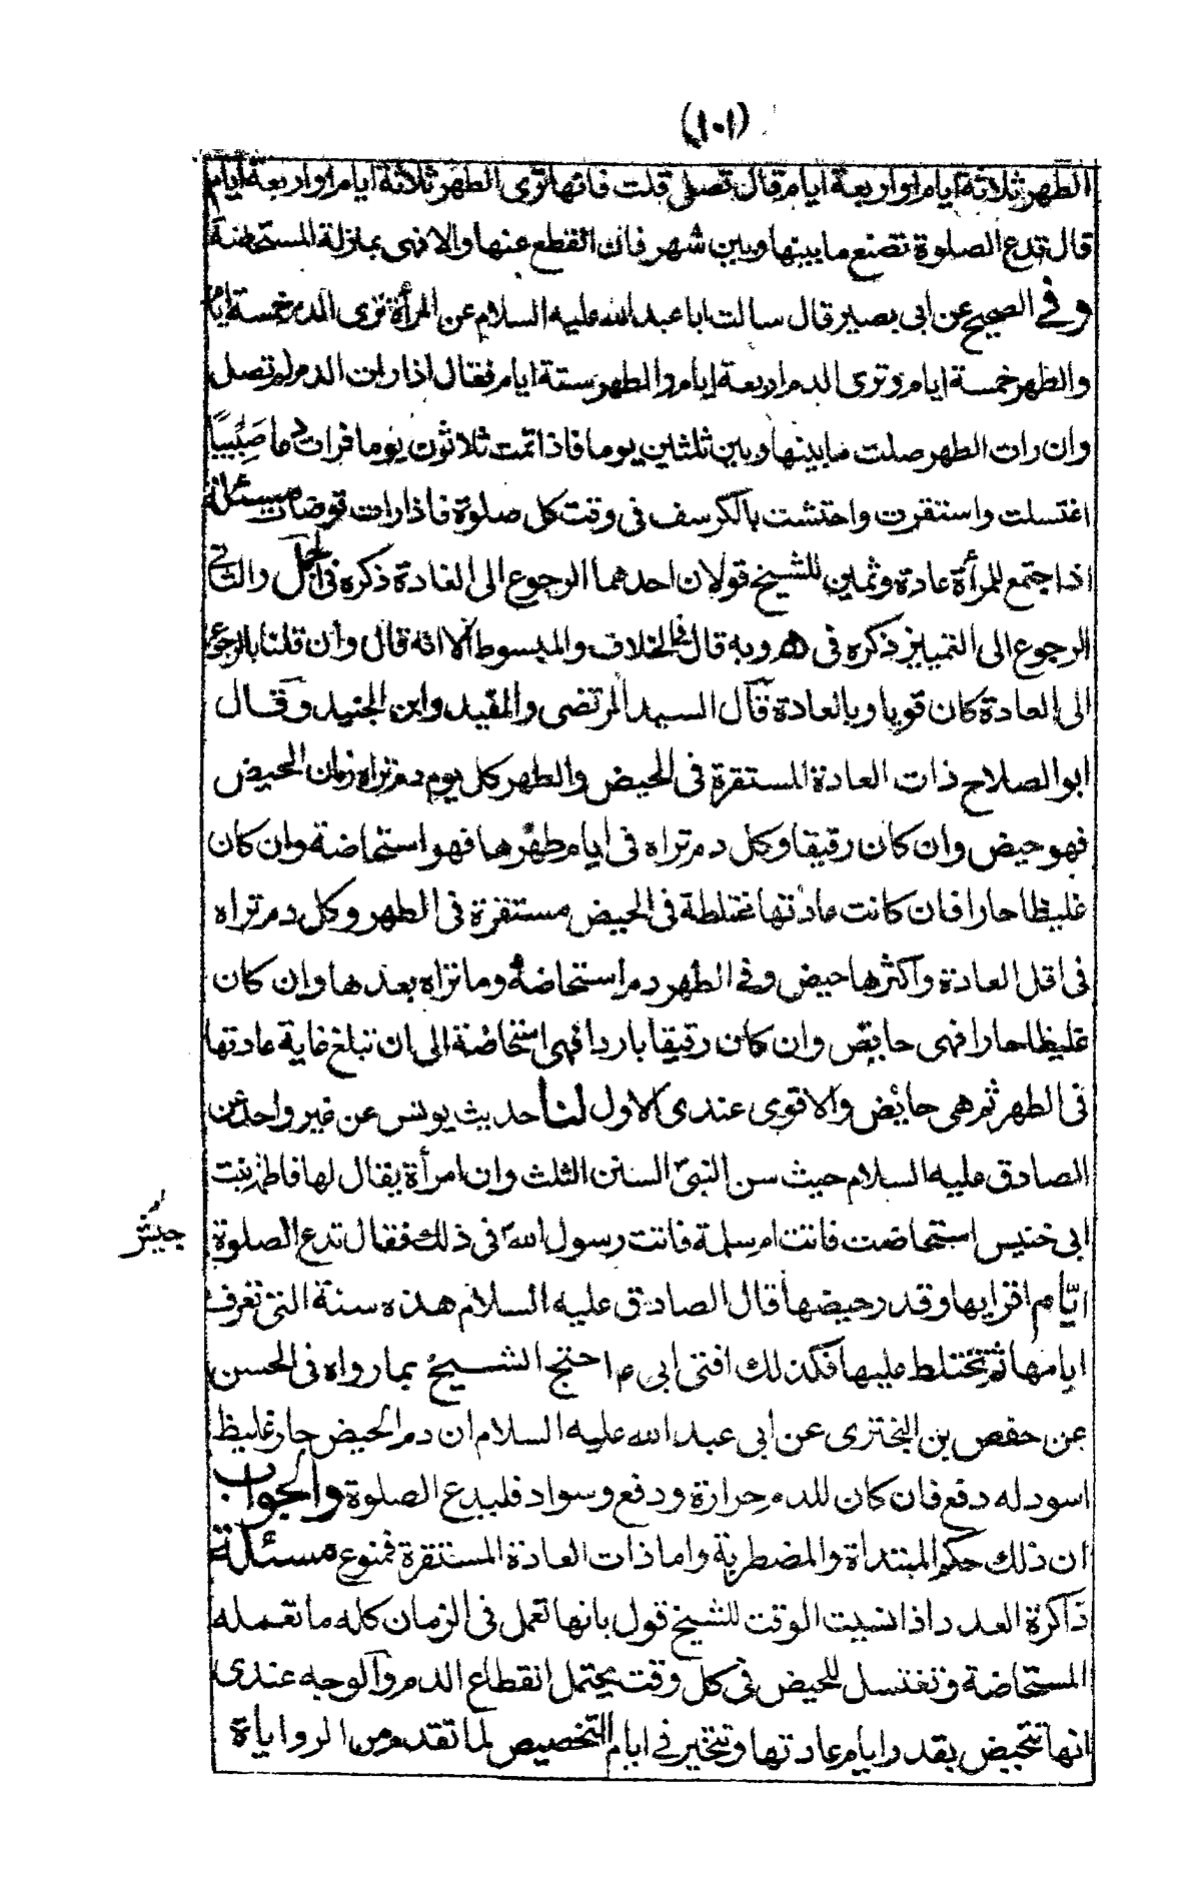 (١٠١)
الطهر ثلاثة ايام او اربعة ايام قال تصلى قلت فانها ترى الطهر ثلاثة ايام او اربعة ايام
قال تدع الصلوة تصنع ما بينها وبين شهر فان انقطع عنها والا فهى بمنزلة المستحاضة
وفي الصحيح عن ابى بصير قال سالت ابا عبد الله عليه السلام عن المرأة ترى الدم خمسة ايام
والطهر خمسة ايام وترى الدم اربعة ايام والطهر ستة ايام فقال اذا رات الدم لم تصل
وان رات الطهر صلت ما بينها وبين ثلثين يوما فاذا تمت ثلاثون يوما فرات دما صَبيبًا
اغتسلت واستقرت واحتشت بالكرسف فى وقت كل صلوة فاذا رات توضات مسئلة
اذا اجتمع للمرأة عادة وتميز للشيخ قولان احدهما الرجوع الى العادة ذكره فى الجمل والثانى
الرجوع الى التمييز ذكره فى ه وبه قال فى الخلاف والمبسوط الا انه قال وان قلنا بالرجوع
الى العادة كان قويا وبالعادة قال السيد المرتضى والمفيد وابن الجنيد وقال
ابو الصلاح ذات العادة المستقرة فى الحيض والطهر كل يوم دم تراه زمان الحيض
فهو حيض وان كان رقيقا وكل دم تراه فى ايام طهرها فهو استحاضة وان كان
غليظا حارا فان كانت عادتها مختلطة فى الحيض مستقرة فى الطهر وكل دم تراه
فى اقل العادة واكثرها حيض وفي الطهر دم استحاضة وما تراه بعدها وان كان
غليظا حارا فهى حايض وان كان رقيقا باردا فهى استحاضة الى ان تبلغ غاية عادتها
فى الطهر ثم هى حائض والاقوى عندى الاول لنا حديث يونس عن غير واحد عن
الصادق عليه السلام حيث سن النبىّ السنن الثلث وان امرأة يقال لها فاطمة بنت
ابى خنيس استحاضت فاتت ام سلمة فاتت رسول الله فى ذلك فقال تدع الصلوة
ايّام اقرايها وقدر حيضها قال الصادق عليه السلام هذه سنة التى تعرف
ايامها ثم تختلط عليها فكذلك افتى ابى ع م احتج الشيخ بما رواه فى الحسن
عن حفص بن البخترى عن ابى عبد الله عليه السلام ان دم الحيض حار غليظ
اسود له دفع فان كان للدم حرارة ودفع وسواد فليدع الصلوة والجواب
ان ذلك حكم المبتداة والمضطربة واما ذات العادة المستقرة فممنوع مسئلة
ذاكرة العدد اذا نسيت الوقت للشيخ قول بانها تعمل فى الزمان كله ما تعمله
المستحاضة وتغتسل للحيض فى كل وقت يحتمل انقطاع الدم والوجه عندى
انها تتحيض بقدر ايام عادتها وتتخير فى ايام التخصيص لما تقدم من الرواياة